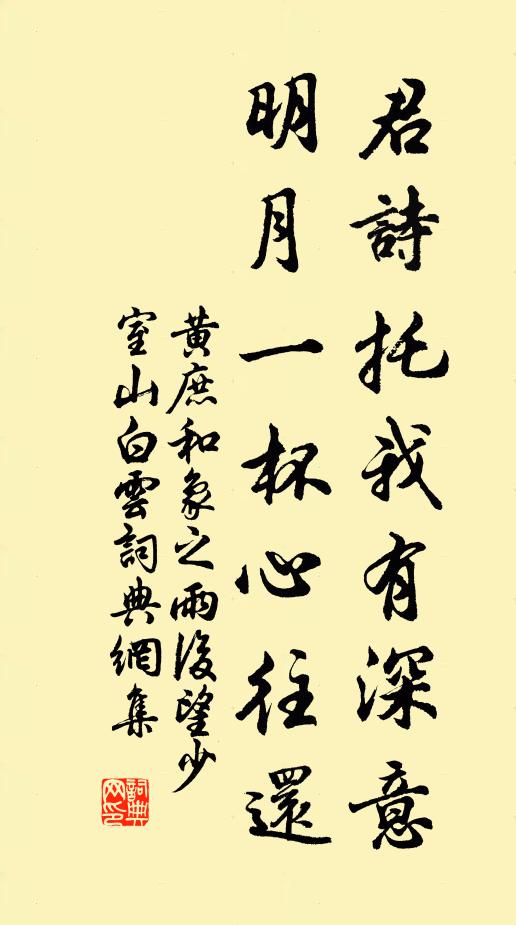 君詩托我有深意
明月一杯心往還
黃庶和象之雨後望少
室山白雲詞典網集
詞典网印